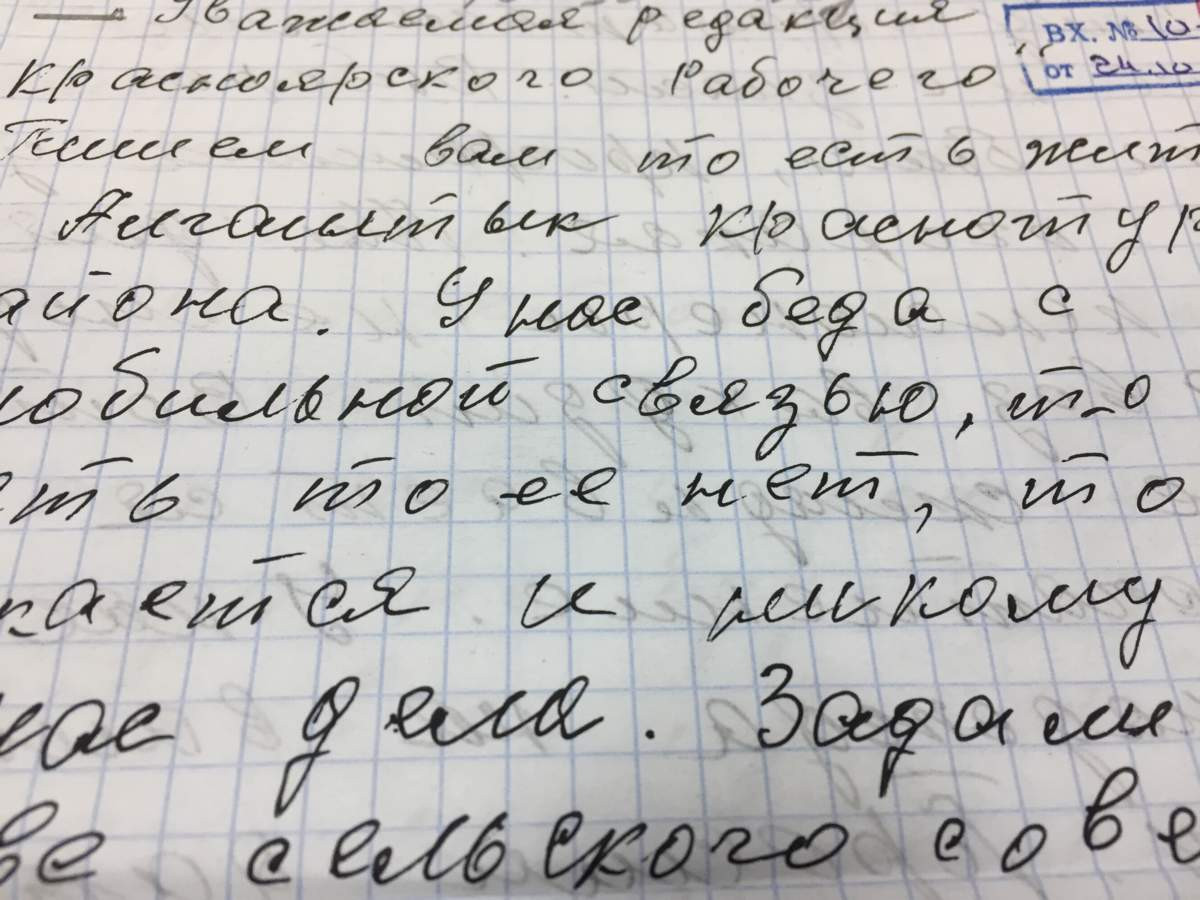 Уважаемая редакция
ВХ. № 10
Красноярского Рабочего"
от 24.10
Пишем вам то есть жит
Алгаштык Краснотур
айона. У нас беда с
мобильной связью, то
сть то ее нет, то
кается и никому
нас дела. Задали
ве сельского сове